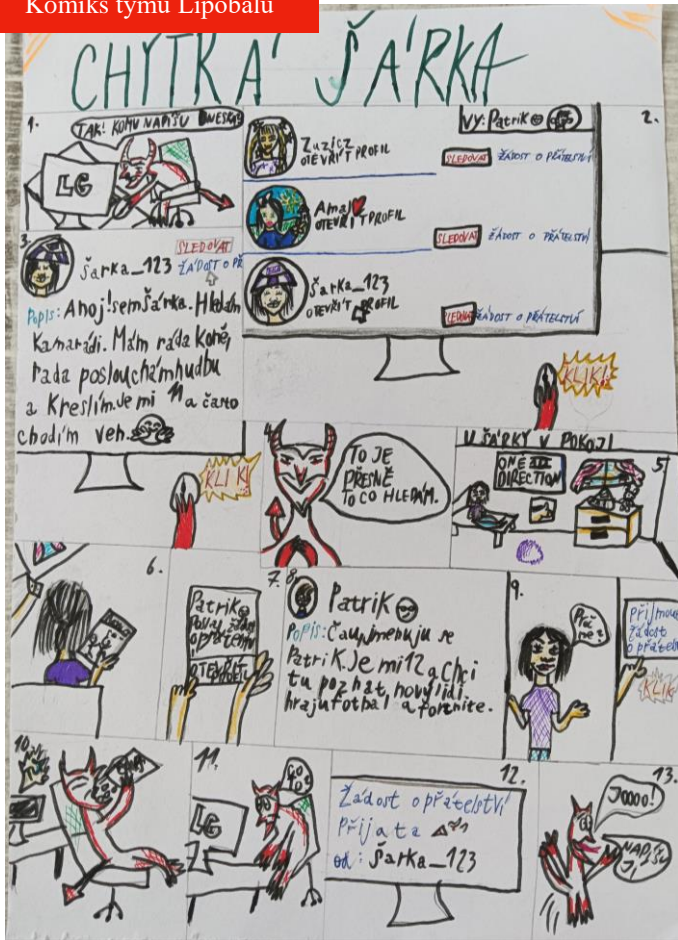 Komiks týmu Lipobalu
CHYTKÁ ŠÁRKA
1.
TAK! KOMU NAPÍŠU DNESKA?
LG
2.
VY: Patrik
Zuzicz
OTEVŘÍT PROFIL
SLEDOVAT ŽÁDOST O PŘÁTELSTVÍ
Amaj
OTEVŘÍT PROFIL
SLEDOVAT ŽÁDOST O PŘÁTELSTVÍ
Šarka_123
OTEVŘÍT PROFIL
SLEDOVAT ŽÁDOST O PŘÁTELSTVÍ
KLIK!
3.
SLEDOVAT
Šarka_123 ŽÁDOST O PŘ
Popis: Ahoj! sem Šárka. Hledám
Kamarádi. Mám ráda koně,
ráda poslouchám hudbu
a kreslím. Je mi 11 a často
chodím veh.
KLIK!
4.
TO JE
PŘESNĚ
TO CO HLEDÁM.
5.
U ŠÁRKY V POKOJI
ONE
DIRECTION
6.
7.
Patrik
OTEVŘÍT
8.
Patrik
Popis: Čau, jmenuju se
Patrik. Je mi 12 a chci
tu poznat nový lidi
hraju fotbal a fortnite.
9.
Proč
ne?
Přijmou
žádost
o přátels
KLIK
10.
11.
LG
12.
Žádost o přátelství
Přijata
od: Šarka_123
13.
Joooo!
NAPÍŠU
JÍ